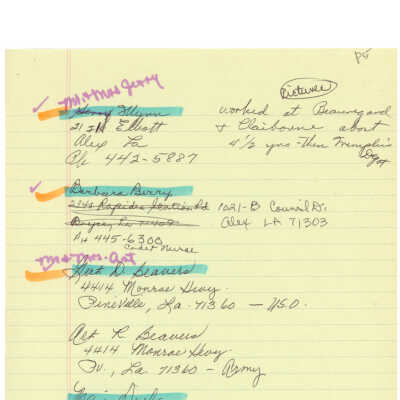 P5
Picture
Mr + Mrs Jerry
Flynn worked at Beauregard
Elliott + Claiborne about
Alex La 4 1/2 yrs - then Memphis
Ph 442-5887
Barbara Berry
Rapides Station Rd 1021-B Council Dr.
Boyce, La Alex LA 71303
PH 445-6300
Cadet Nurse
Mr + Mrs. Art
Art D. Beavers
4414 Monroe Hwy.
Pineville, La. 71360 - USO.
Art R Beavers
4414 Monroe Hwy
Pv., La. 71360 - Army